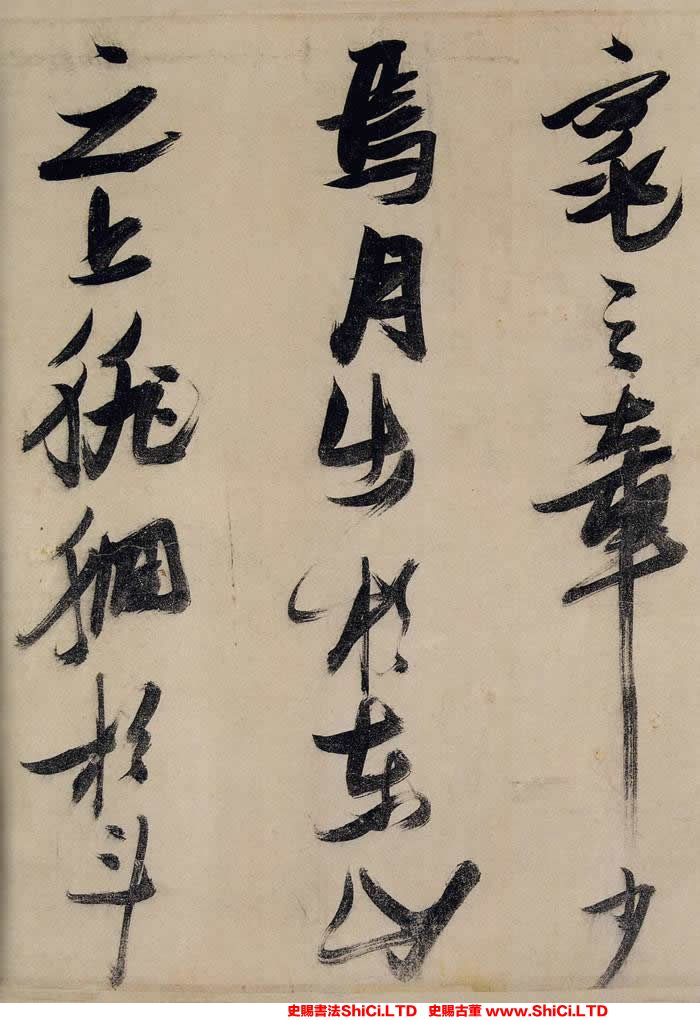 窕之章少
焉月出於東山
之上徘徊於斗
史賜書法ShiCi.LTD 史賜古董 www.ShiCi.LTD